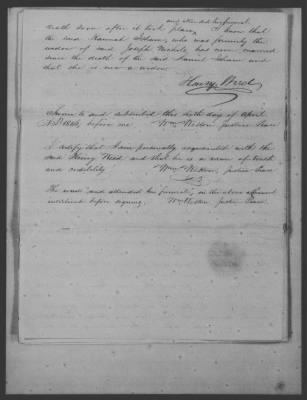 and attended his funeral
death soon after it took place, I know that
the said Hannah, who was formerly the
widow of said Joseph Nichols has never married
since the death of the said Samuel
that she is now a widow
Henry Weed
Sworn to and subscribed this day of April
A.D. 1846, before me Wm Justice Peace
I certify that I am personally acquainted with the
said Henry Weed and that he is a man of truth
and credibility Wm Justice Peace
The words "and attended his funeral", in the above affidavit
interlined before signing. Wm Justice Peace